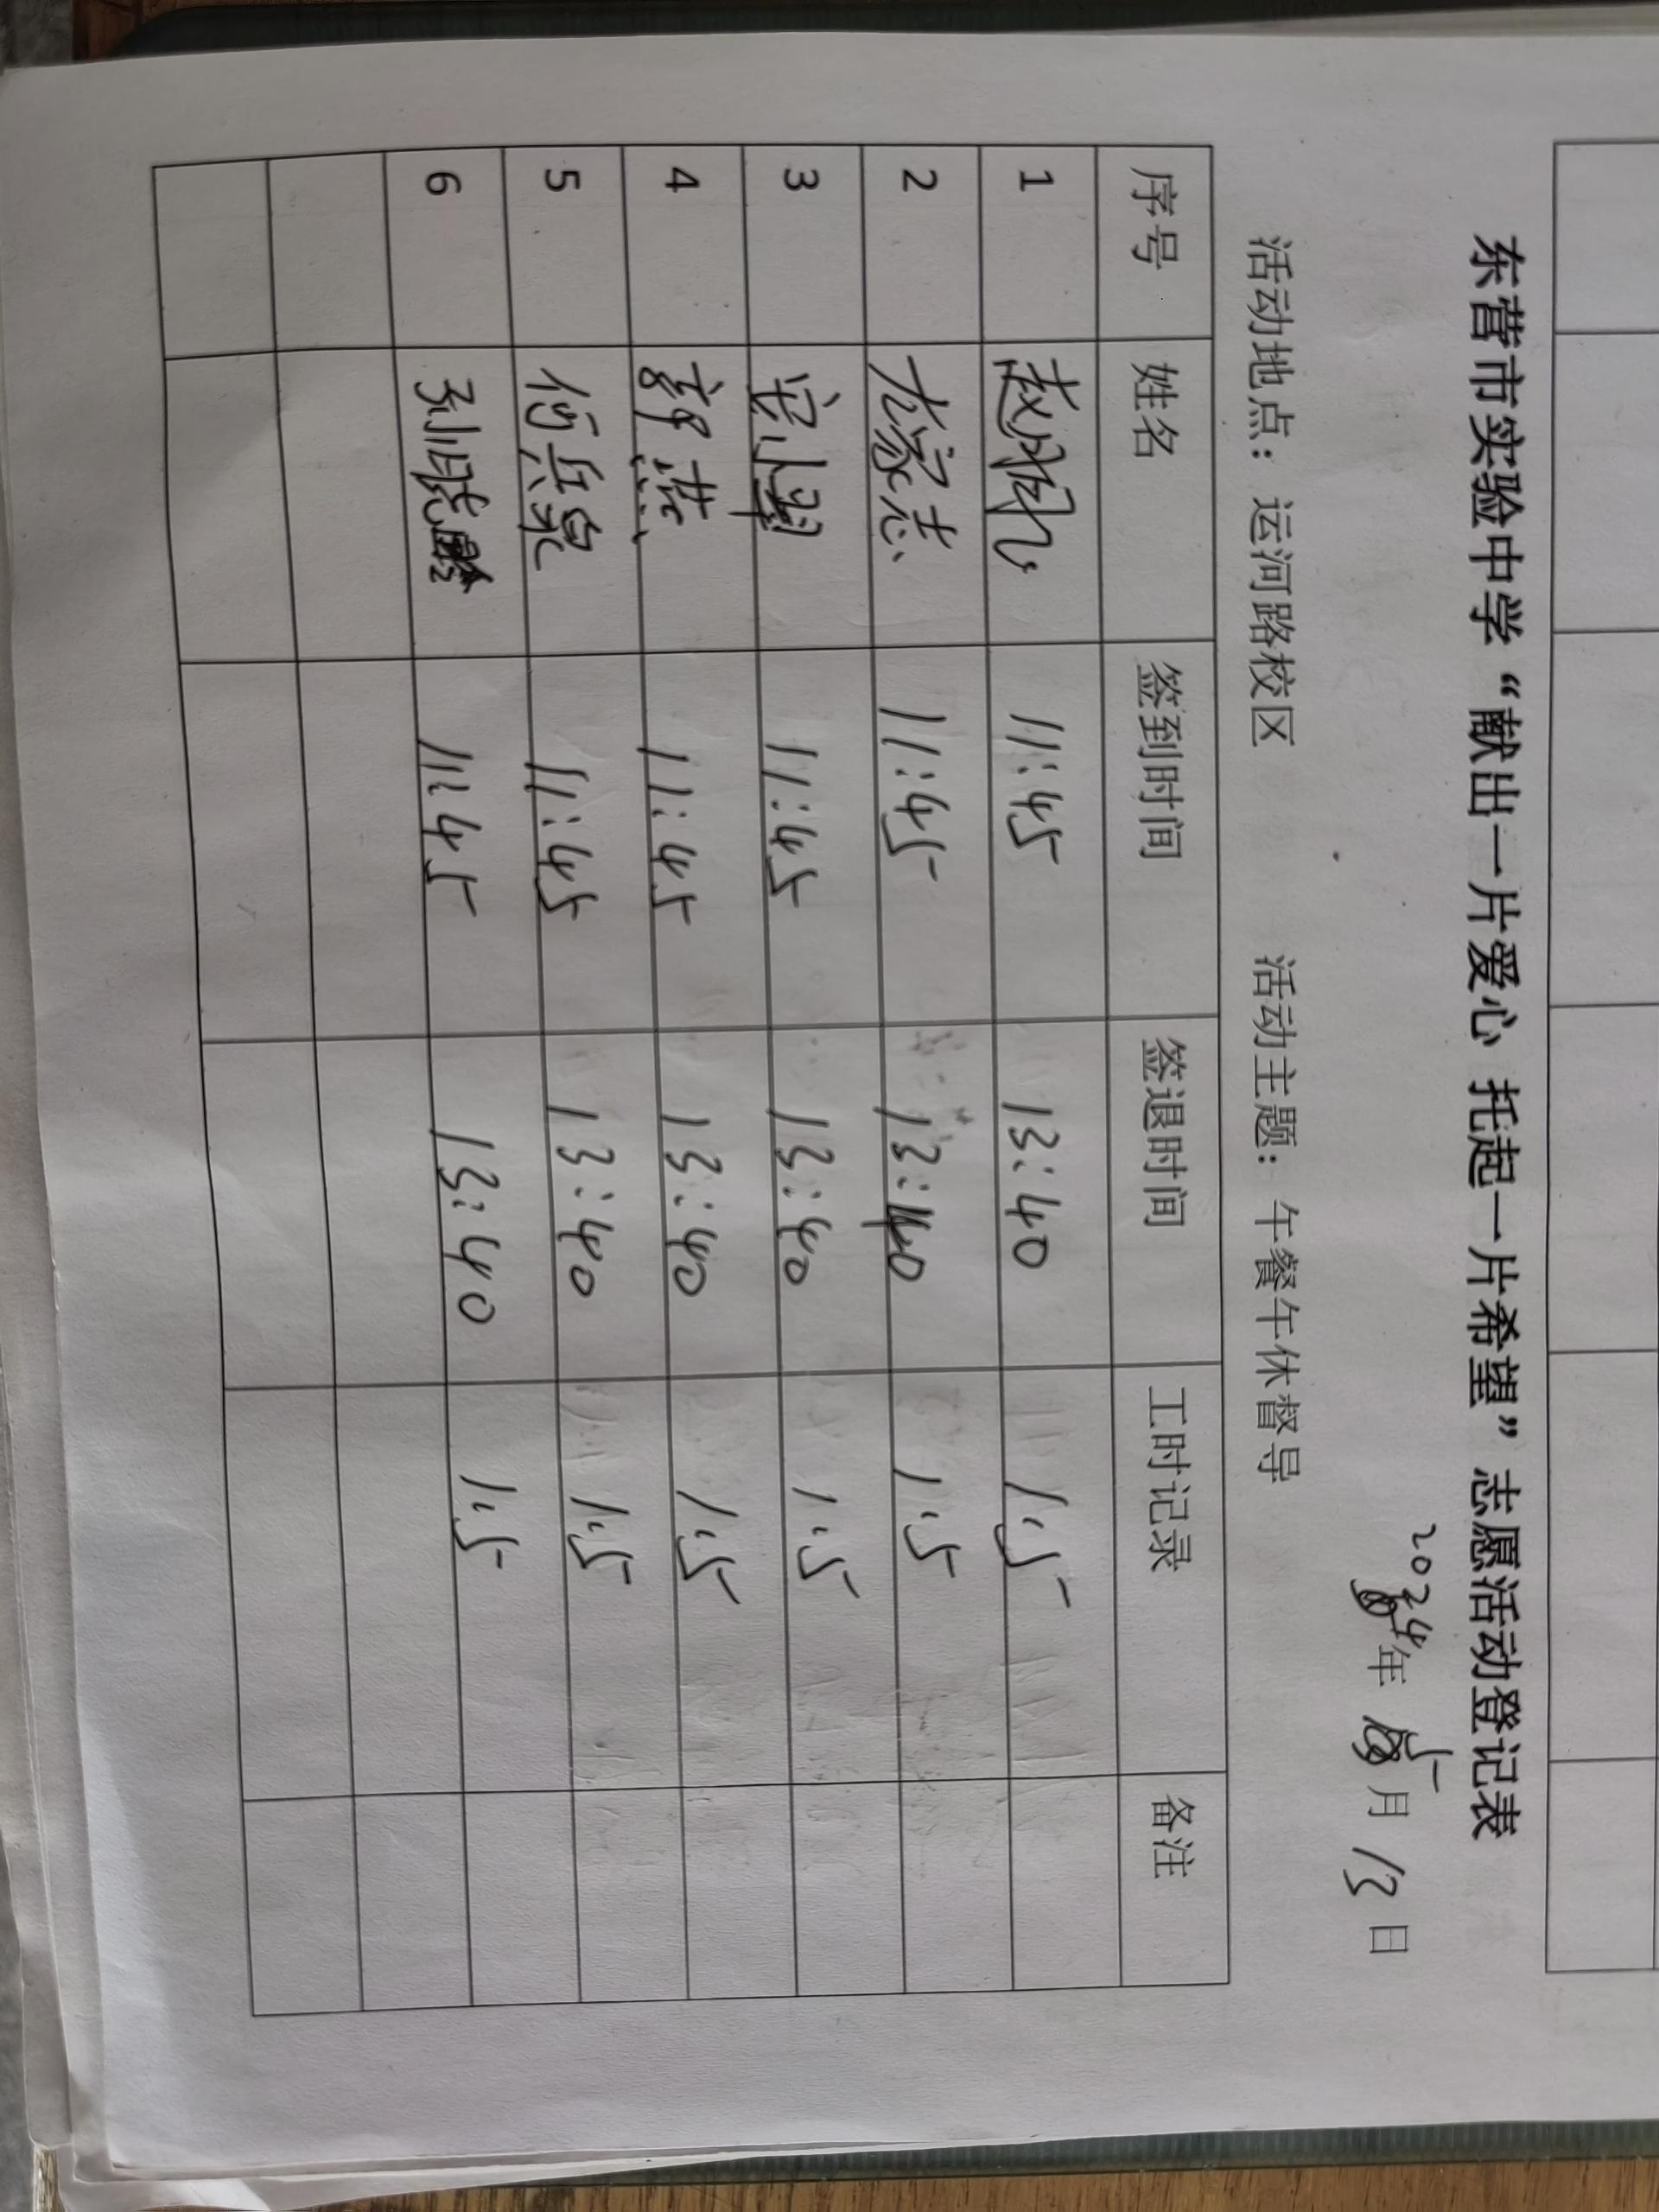 东营市实验中学“献出一片爱心 托起一片希望”志愿活动登记表
2024年 5月 13日
活动地点：运河路校区 活动主题：午餐午休督导
序号 姓名 签到时间 签退时间 工时记录 备注
1 11:45 13:40 1.5
2 尤家志 11:45 13:40 1.5
3 11:45 13:40 1.5
4 薛燕 11:45 13:40 1.5
5 何兵泉 11:45 13:40 1.5
6 11:45 13:40 1.5